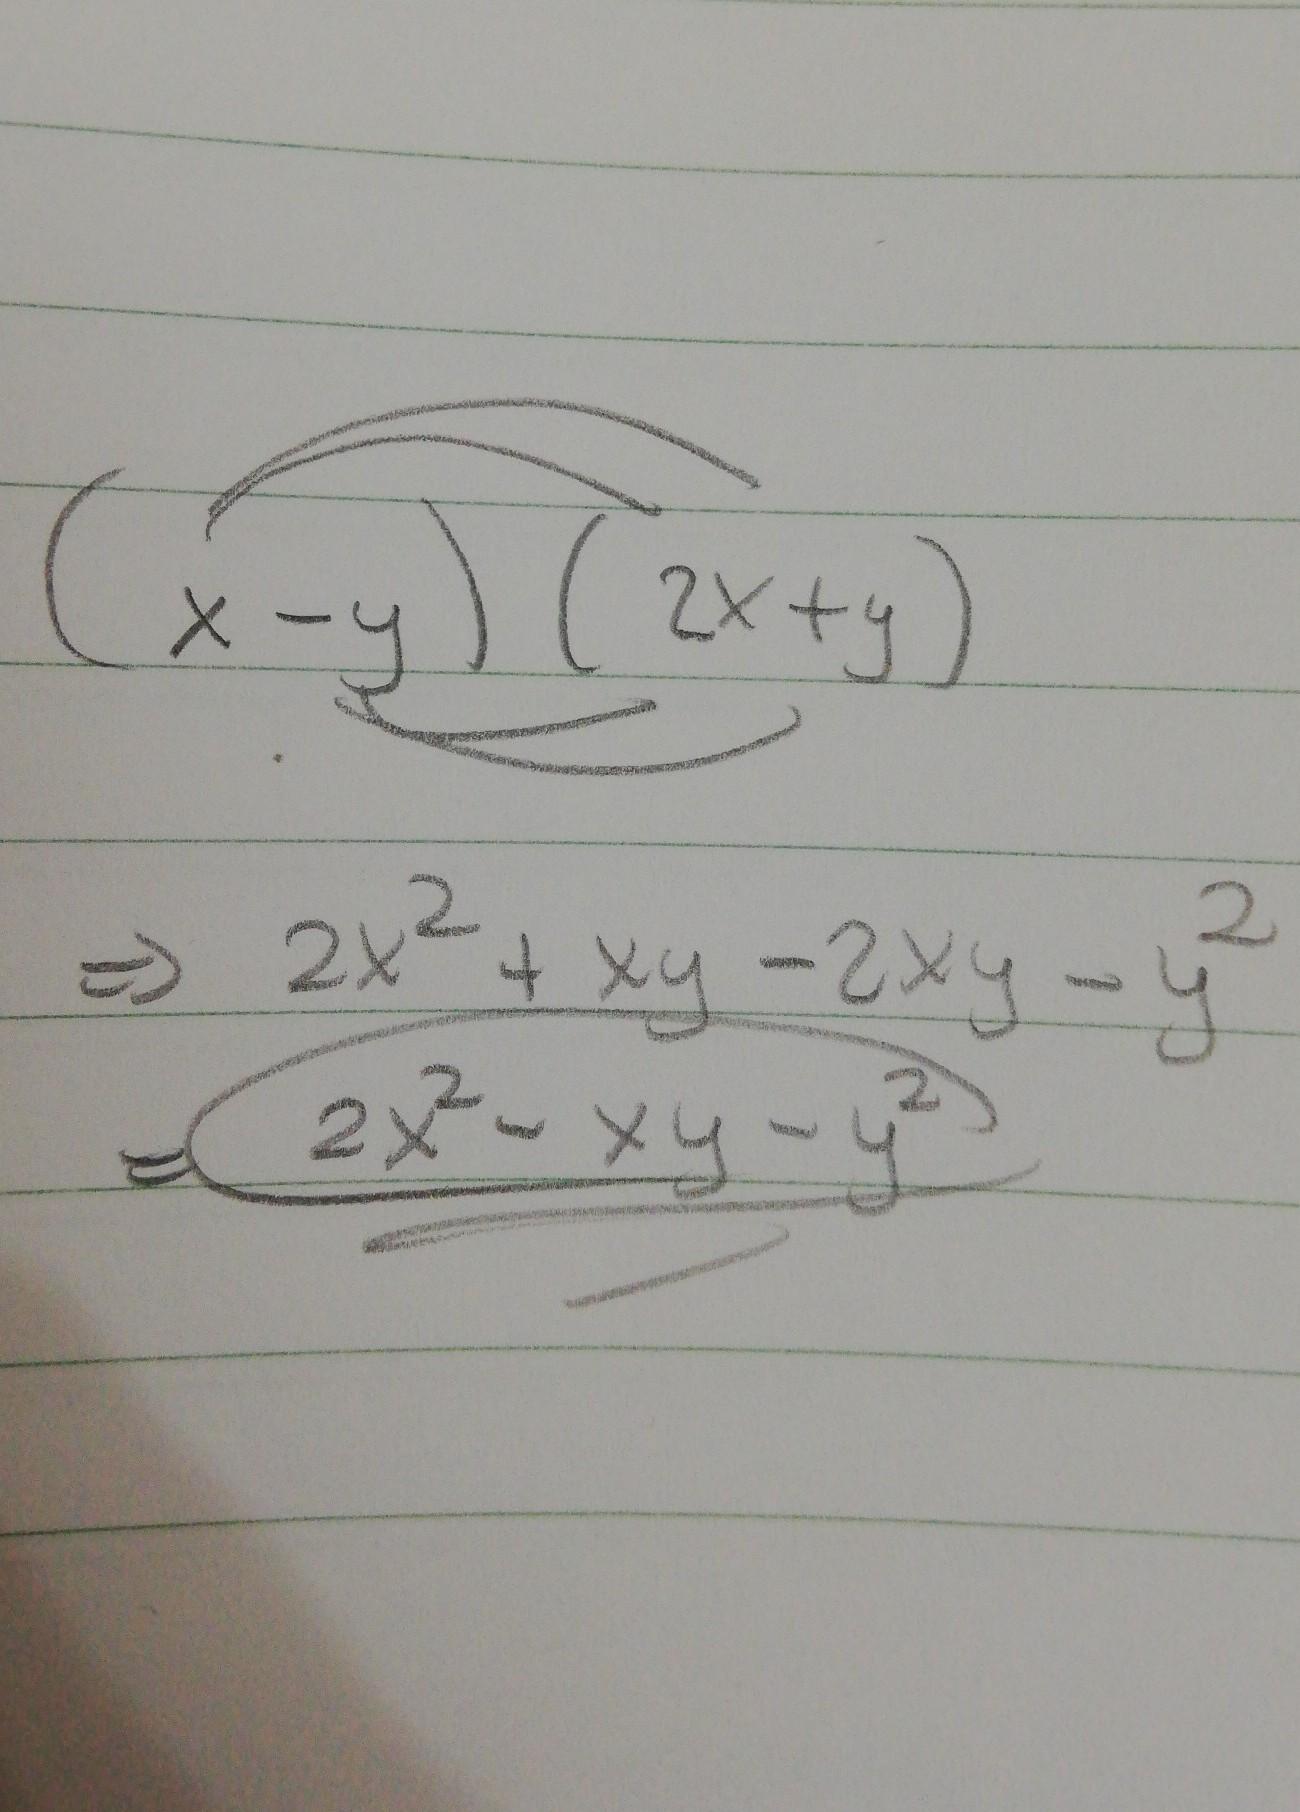 (x-y)(2x+y)
⇒ 2x² + xy - 2xy - y²
= 2x² - xy - y²